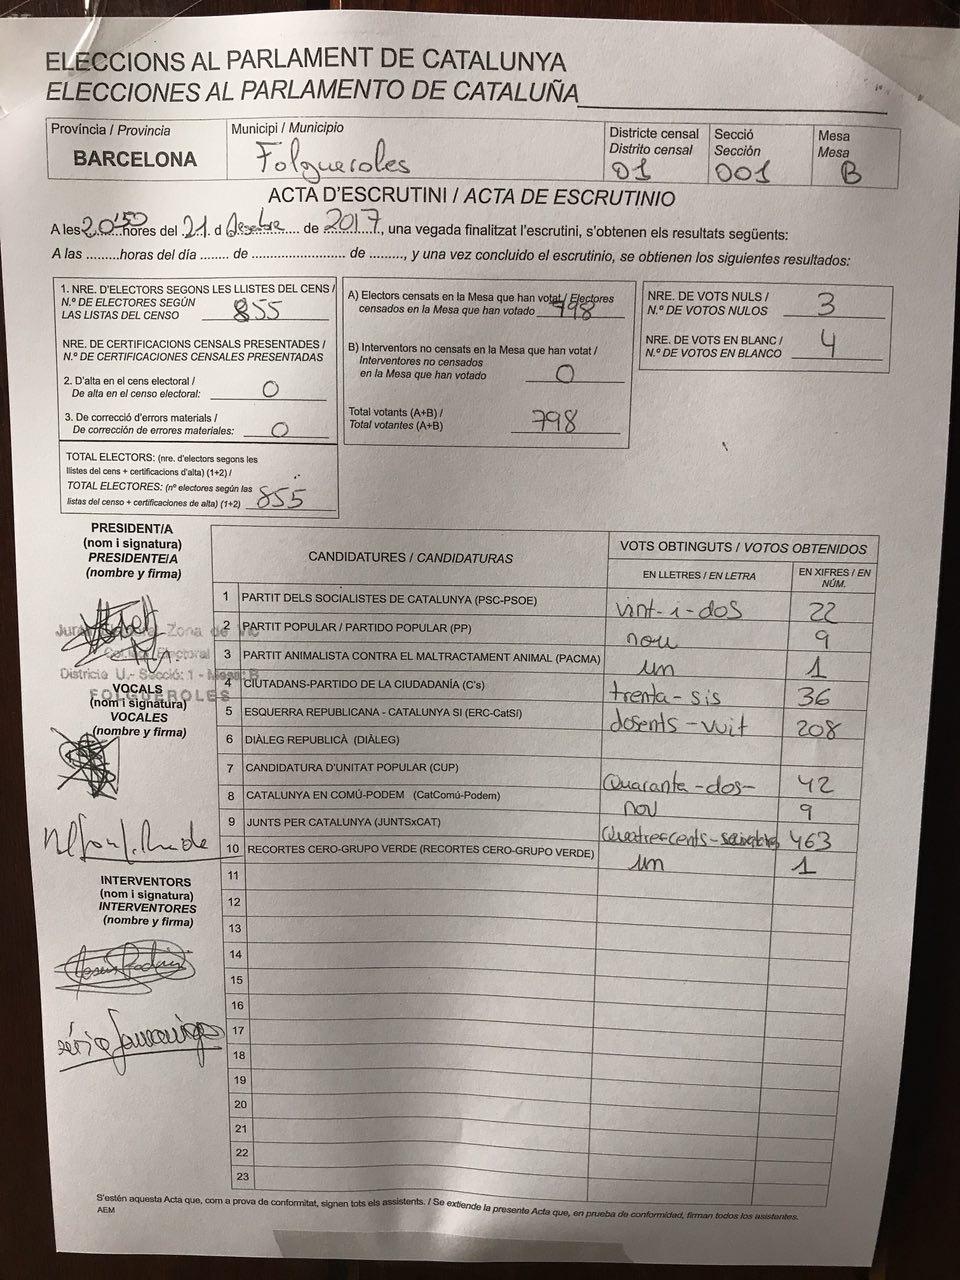 ELECCIONS AL PARLAMENT DE CATALUNYA
ELECCIONES AL PARLAMENTO DE CATALUÑA
Província / Provincia
BARCELONA
Municipi / Municipio
Folgueroles
Districte censal
Distrito censal
01
Secció
Sección
001
Mesa
Mesa
B
ACTA D'ESCRUTINI / ACTA DE ESCRUTINIO
A les 20'50 hores del 21. d desembre de 2017, una vegada finalitzat l'escrutini, s'obtenen els resultats següents:
A las .........horas del día ........ de ......................... de ........., y una vez concluido el escrutinio, se obtienen los siguientes resultados:
1. NRE. D'ELECTORS SEGONS LES LLISTES DEL CENS /
N.º DE ELECTORES SEGÚN
LAS LISTAS DEL CENSO 855
NRE. DE CERTIFICACIONS CENSALS PRESENTADES /
N.º DE CERTIFICACIONES CENSALES PRESENTADAS
2. D'alta en el cens electoral /
De alta en el censo electoral: 0
3. De correcció d'errors materials /
De corrección de errores materiales: 0
TOTAL ELECTORS: (nre. d'electors segons les
llistes del cens + certificacions d'alta) (1+2) /
TOTAL ELECTORES: (nº electores según las
listas del censo + certificaciones de alta) (1+2) 855
A) Electors censats en la Mesa que han votat / Electores
censados en la Mesa que han votado 798
B) Interventors no censats en la Mesa que han votat /
Interventores no censados
en la Mesa que han votado 0
Total votants (A+B) /
Total votantes (A+B) 798
NRE. DE VOTS NULS /
N.º DE VOTOS NULOS 3
NRE. DE VOTS EN BLANC /
N.º DE VOTOS EN BLANCO 4
PRESIDENT/A
(nom i signatura)
PRESIDENTE/A
(nombre y firma)
Zona de Vic
Electoral
Secció: 1 - Mesa: B
FOLGUEROLES
VOCALS
(nom i signatura)
VOCALES
(nombre y firma)
INTERVENTORS
(nom i signatura)
INTERVENTORES
(nombre y firma)
CANDIDATURES / CANDIDATURAS
VOTS OBTINGUTS / VOTOS OBTENIDOS
EN LLETRES / EN LETRA
EN XIFRES / EN
NÚM.
1 PARTIT DELS SOCIALISTES DE CATALUNYA (PSC-PSOE) vint-i-dos 22
2 PARTIT POPULAR / PARTIDO POPULAR (PP) nou 9
3 PARTIT ANIMALISTA CONTRA EL MALTRACTAMENT ANIMAL (PACMA) un 1
4 CIUTADANS-PARTIDO DE LA CIUDADANÍA (C's) trenta-sis 36
5 ESQUERRA REPUBLICANA - CATALUNYA SI (ERC-CatSí) dosents-vuit 208
6 DIÀLEG REPUBLICÀ (DIÀLEG)
7 CANDIDATURA D'UNITAT POPULAR (CUP) Quaranta-dos- 42
8 CATALUNYA EN COMÚ-PODEM (CatComú-Podem) nou 9
9 JUNTS PER CATALUNYA (JUNTSxCAT) 463
10 RECORTES CERO-GRUPO VERDE (RECORTES CERO-GRUPO VERDE) un 1
11
12
13
14
15
16
17
18
19
20
21
22
23
S'estén aquesta Acta que, com a prova de conformitat, signen tots els assistents. / Se extiende la presente Acta que, en prueba de conformidad, firman todos los asistentes.
AEM